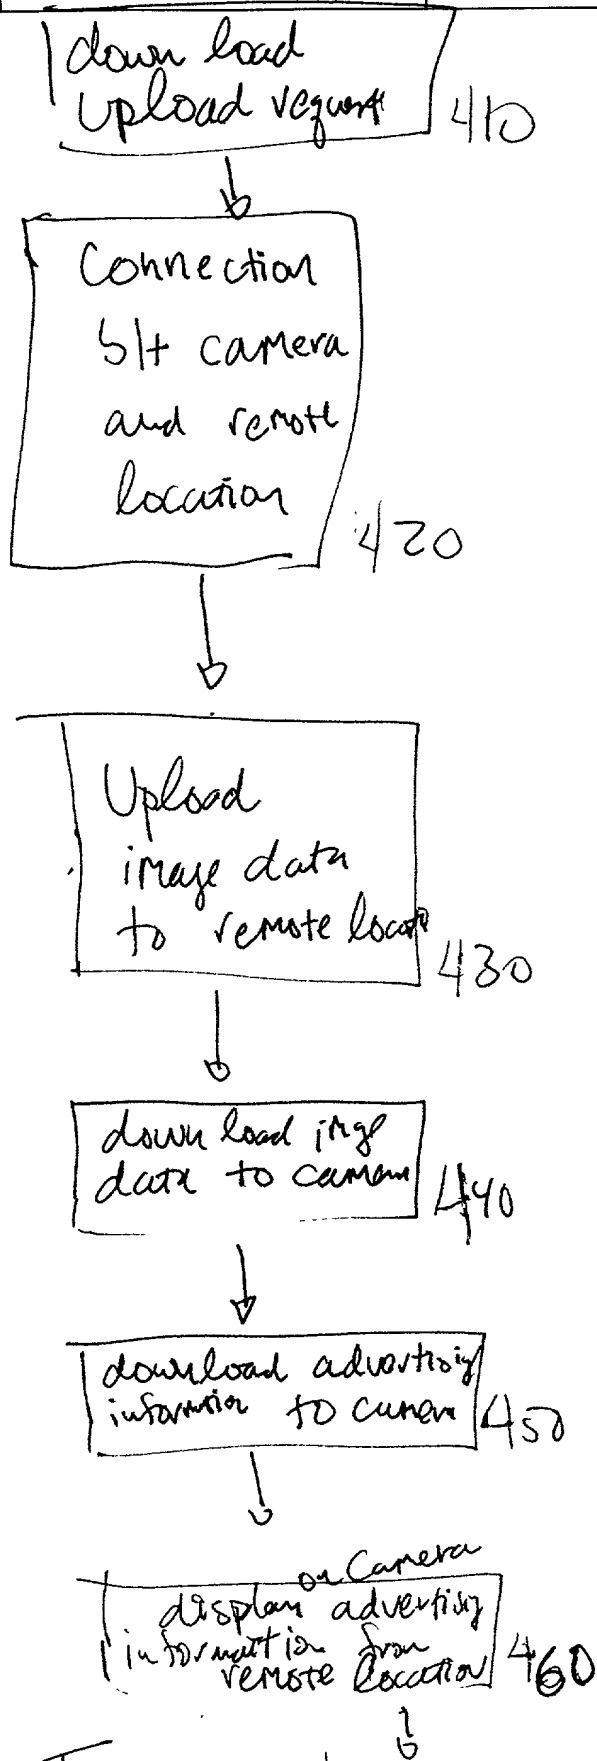 down load
upload request
410
Connection
b/t camera
and remote
location
420
Upload
image data
to remote locati
430
down load imge
data to camera
440
download advertising
information to camera
450
on Camera
display advertising
information from
remote location
460